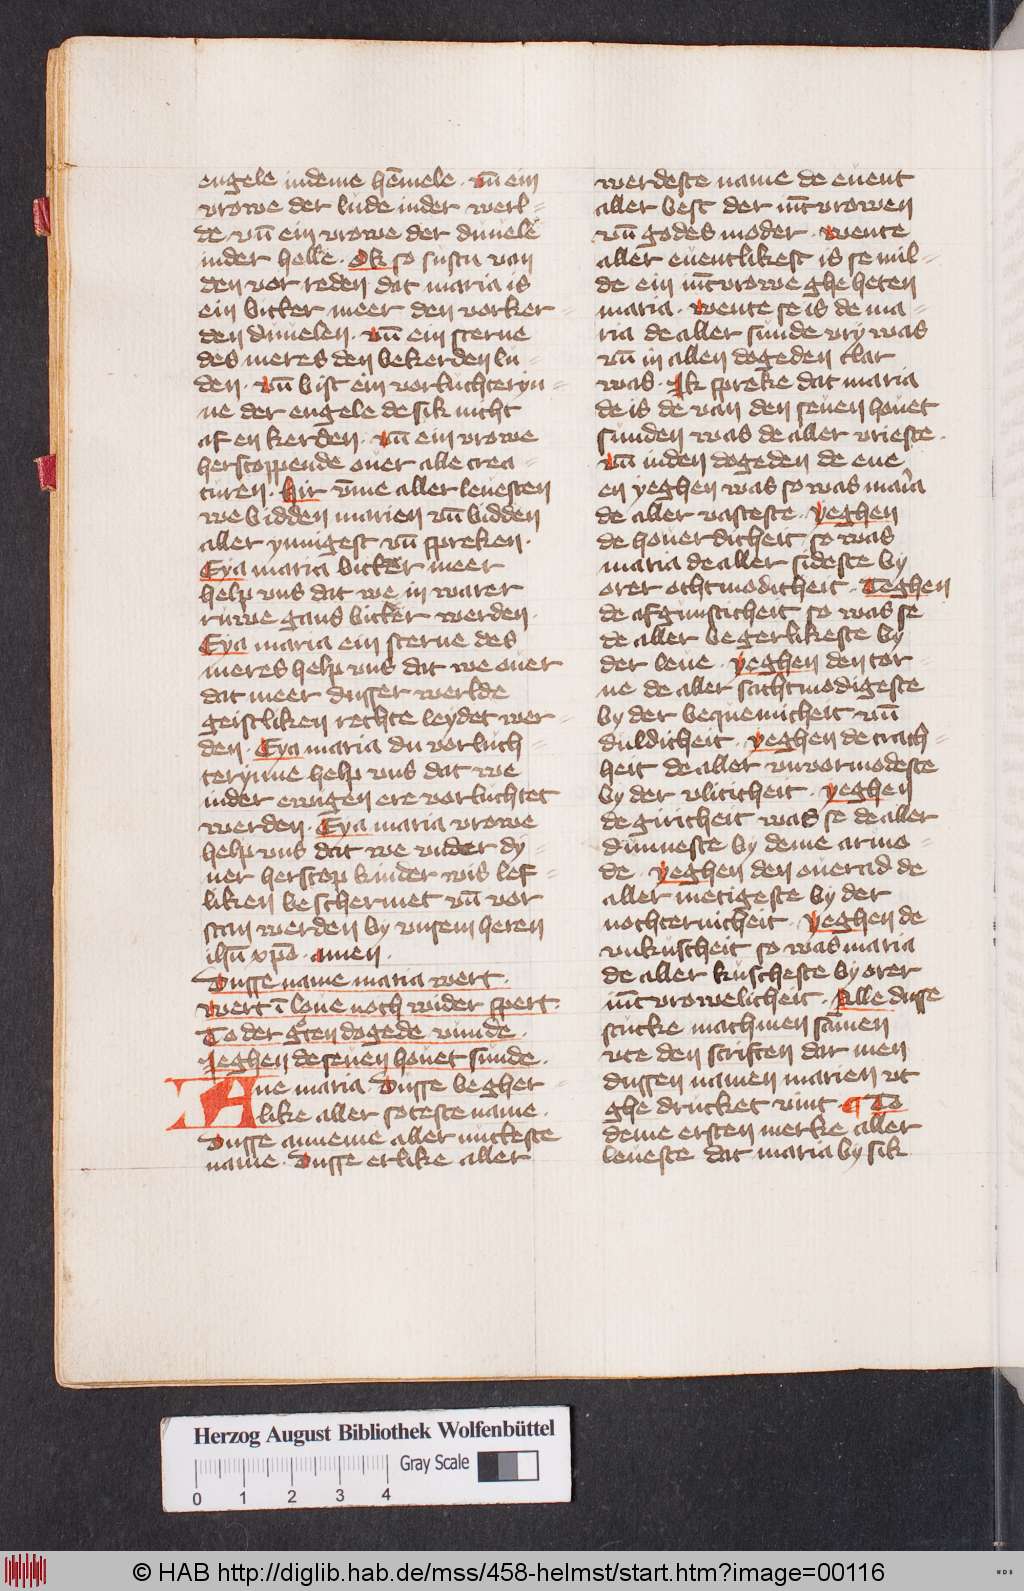 engele indeme hēmele · vn̄ ein
vrowe der lude inder werl=
de vn̄ ein vrowe der duuele
inder helle · Ok so sustu van
den vor reden dat maria is
ein bitter meer den vorker=
den duuelen · vn̄ ein sterne
des meres den bekerden lu=
den · vn̄ bist ein vorluchteryn=
ne der engele de sik nicht
af en kerden · vn̄ ein vrowe
herscoppende ouer alle crea=
turen · Hir v̄me aller leuesten
we bidden marien vn̄ bidden
aller ynnigest vn̄ spreken ·
Eya maria bitter meer
help vns dat we in warer
ruwe gans bitter werden ·
Eya maria ein sterne des
meres help vns dat we ouer
dat meer dusser werlde
geistliken rechte leydet wer=
den · Eya maria du vorluch=
terynne help vns dat we
inder ewigen ere vorluchtet
werden · Eya maria vrowe
help vns dat we vnder dy=
ner herscop kinder wis lef=
liken beschermet vn̄ vor
stan werden by vnsem heren
ihū xpō · amen ·
Dusse name maria wert ·
Wert ī loue noch wider spert ·
To der gten dogede vunde ·
Jeghen de seuen houet sunde ·
Aue maria · Dusse begher=
like aller soteste name ·
Dusse anneme aller nutteste
name · Dusse erlike aller
werdeste name de euent
aller best der iūcvrowen
vn̄ godes moder · wente
aller euentlikest is se mil=
de ein iūcvrowe gheheten
maria · wente se is de ma=
ria de aller sunde vry was
vn̄ in allen dogeden clar
was · Ik spreke dat maria
de is de van den seuen houet
sunden was de aller vrieste ·
vn̄ inden dogeden de ene
en yeghen was so was maria
de aller vasteste · yeghen
de houerdicheit so was
maria de aller sideste by
orer othmodicheit · Teghen
de afgunsticheit so was se
de aller begerlikeste by
der leue · yeghen den tor=
ne de aller sachtmodigeste
by der bequemicheit vn̄
duldicheit · yeghen de trach=
heit de aller vnvormodeste
by der vliticheit · yeghen
de giricheit was se de aller
dunneste by deme armo=
de · yeghen den ouerad de
aller metigeste by der
nochternicheit · yeghen de
vnkuscheit so was maria
de aller kuscheste by orer
iūcvrowelicheit · Alle dusse
stucke machmen sāmen
vte den scriften dar men
dussen namen marien vt
ghe drucket vint · ¶ To
deme ersten merke aller
leueste dat maria by sik
Herzog August Bibliothek Wolfenbüttel
Gray Scale
0 1 2 3 4
© HAB http://diglib.hab.de/mss/458-helmst/start.htm?image=00116